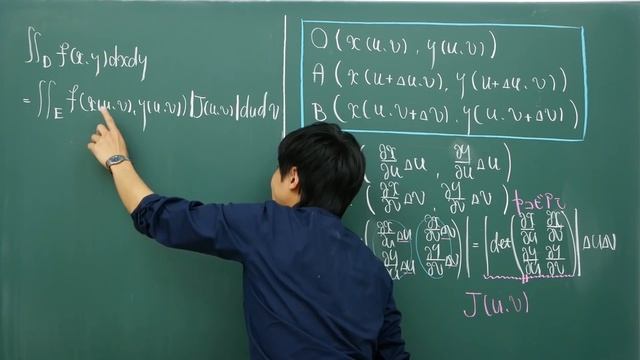 ∬_D f(x,y)dxdy
= ∬_E f(x(u,v), y(u,v)) |J(u,v)| dudv
O(x(u,v), y(u,v))
A(x(u+Δu,v), y(u+Δu,v))
B(x(u,v+Δv), y(u,v+Δv))
(∂x/∂u Δu, ∂y/∂u Δu)
(∂x/∂v Δv, ∂y/∂v Δv)
ヤコビアン
(∂x/∂u Δu ∂x/∂v Δv
∂y/∂u Δu ∂y/∂v Δv)| = |det(∂x/∂u ∂x/∂v
∂y/∂u ∂y/∂v)| ΔuΔv
J(u,v)